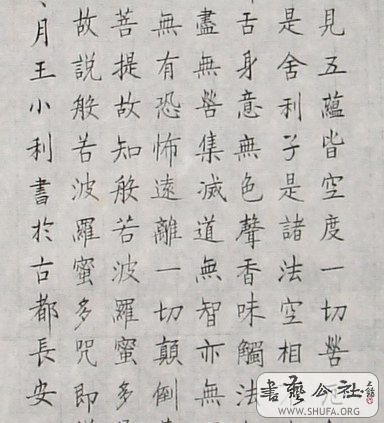 見五蘊皆空度一切苦厄
是舍利子是諸法空相
舌身意無色聲香味觸法
盡無苦集滅道無智亦無
無有恐怖遠離一切顛倒
菩提故知般若波羅蜜多
故說般若波羅蜜多咒即
月王小利書於古都長安
書藝公社
WWW.SHUFA.ORG